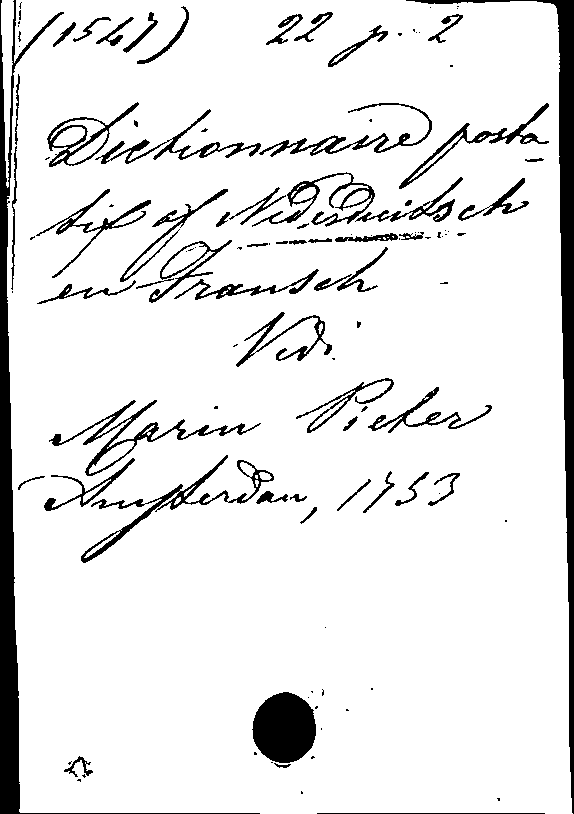 (1547) 22 p. 2
Dictionnaire porta-
tif of Nederduitsch
en Fransch
Vedi
Marin Pieter
Amsterdam, 1753